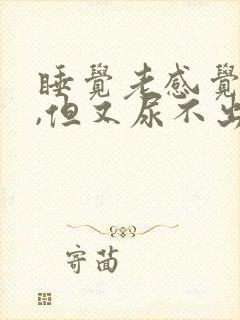 睡覺老感覺
,但又尿不出
寄菌